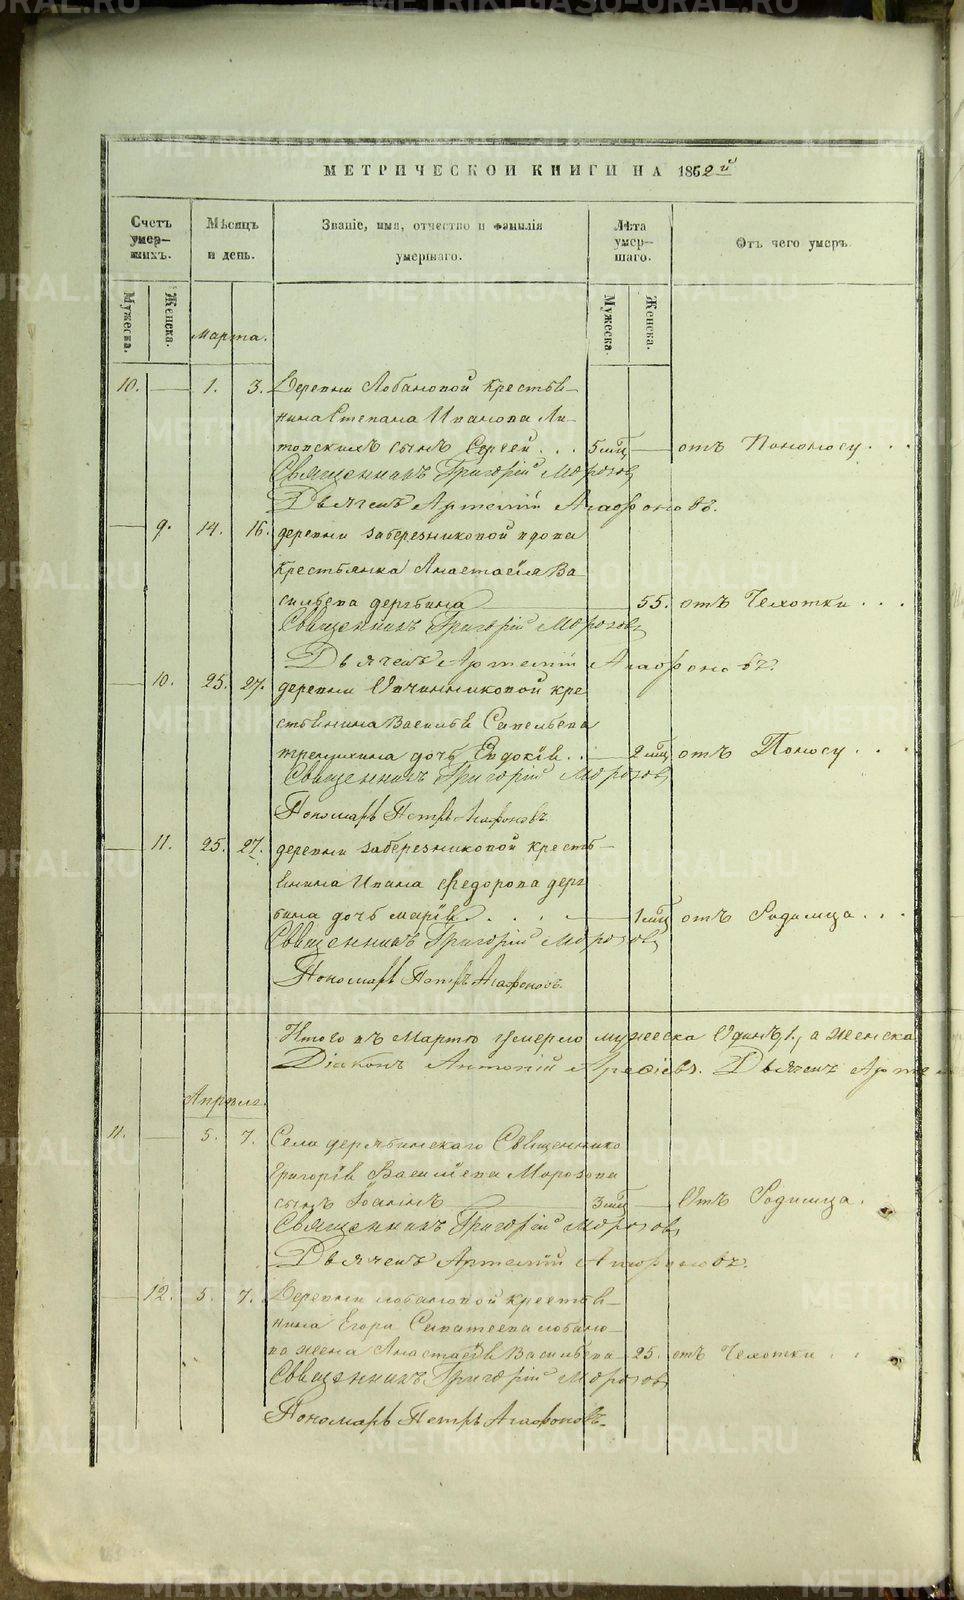 МЕТРИЧЕСКОЙ КНИГИ НА 1862й
Счетъ умер-шихъ.
Мѣсяцъ и день.
Званіе, имя, отчество и фамилія умершаго.
Лѣта умер-шаго.
Отъ чего умеръ.
Мужеска.
Женска.
Мужеска.
Женска.
Марта.
10. 1. 3. Деревни Лобановой крестья-
нина Степана Иванова Ли-
товскихъ сынъ Сергей . . . 5 мѣц отъ Поносу . . .
Священникъ Григорій Морозовъ
Дьячекъ Артемій Агафоновъ.
9. 14. 16. деревни Заберезниковой вдова
крестьянка Анастасія Ва-
сильева дерябина 55. отъ Чехотки . . .
Священникъ Григорій Морозовъ
Дьячекъ Артемій Агафоновъ.
10. 25. 27. деревни Овчинниковой кре
стьянина Василья Савельева
дочь Евдокія . . 2 мѣц отъ Поносу . . .
Священникъ Григорій Морозовъ
Пономарь Петръ Агафоновъ.
11. 25. 27. деревни Заберезниковой кресть-
янина Ивана Федорова деря
бина дочь марія . . . . 1 мѣц отъ Родимца . . .
Священникъ Григорій Морозовъ
Пономарь Петръ Агафоновъ.
Итого въ Мартѣ умерло мужеска Одинъ, 1., а женска
Діаконъ Антоній Арефіевъ. Дьячекъ Арте
Апреля.
11. 5. 7. Села дерябинскаго Священника
Григорія Васильева Морозова
сынъ Іоаннъ 3 мѣц Отъ Родимца.
Священникъ Григорій Морозовъ
Дьячекъ Артемій Агафоновъ.
12. 5. 7. Деревни лобановой крестья-
нина Егора Саватеева лобано-
ва жена Анастасія Васильева 25. отъ Чехотки . .
Священникъ Григорій Морозовъ
Пономарь Петръ Агафоновъ.
METRIKI.GASO-URAL.RU